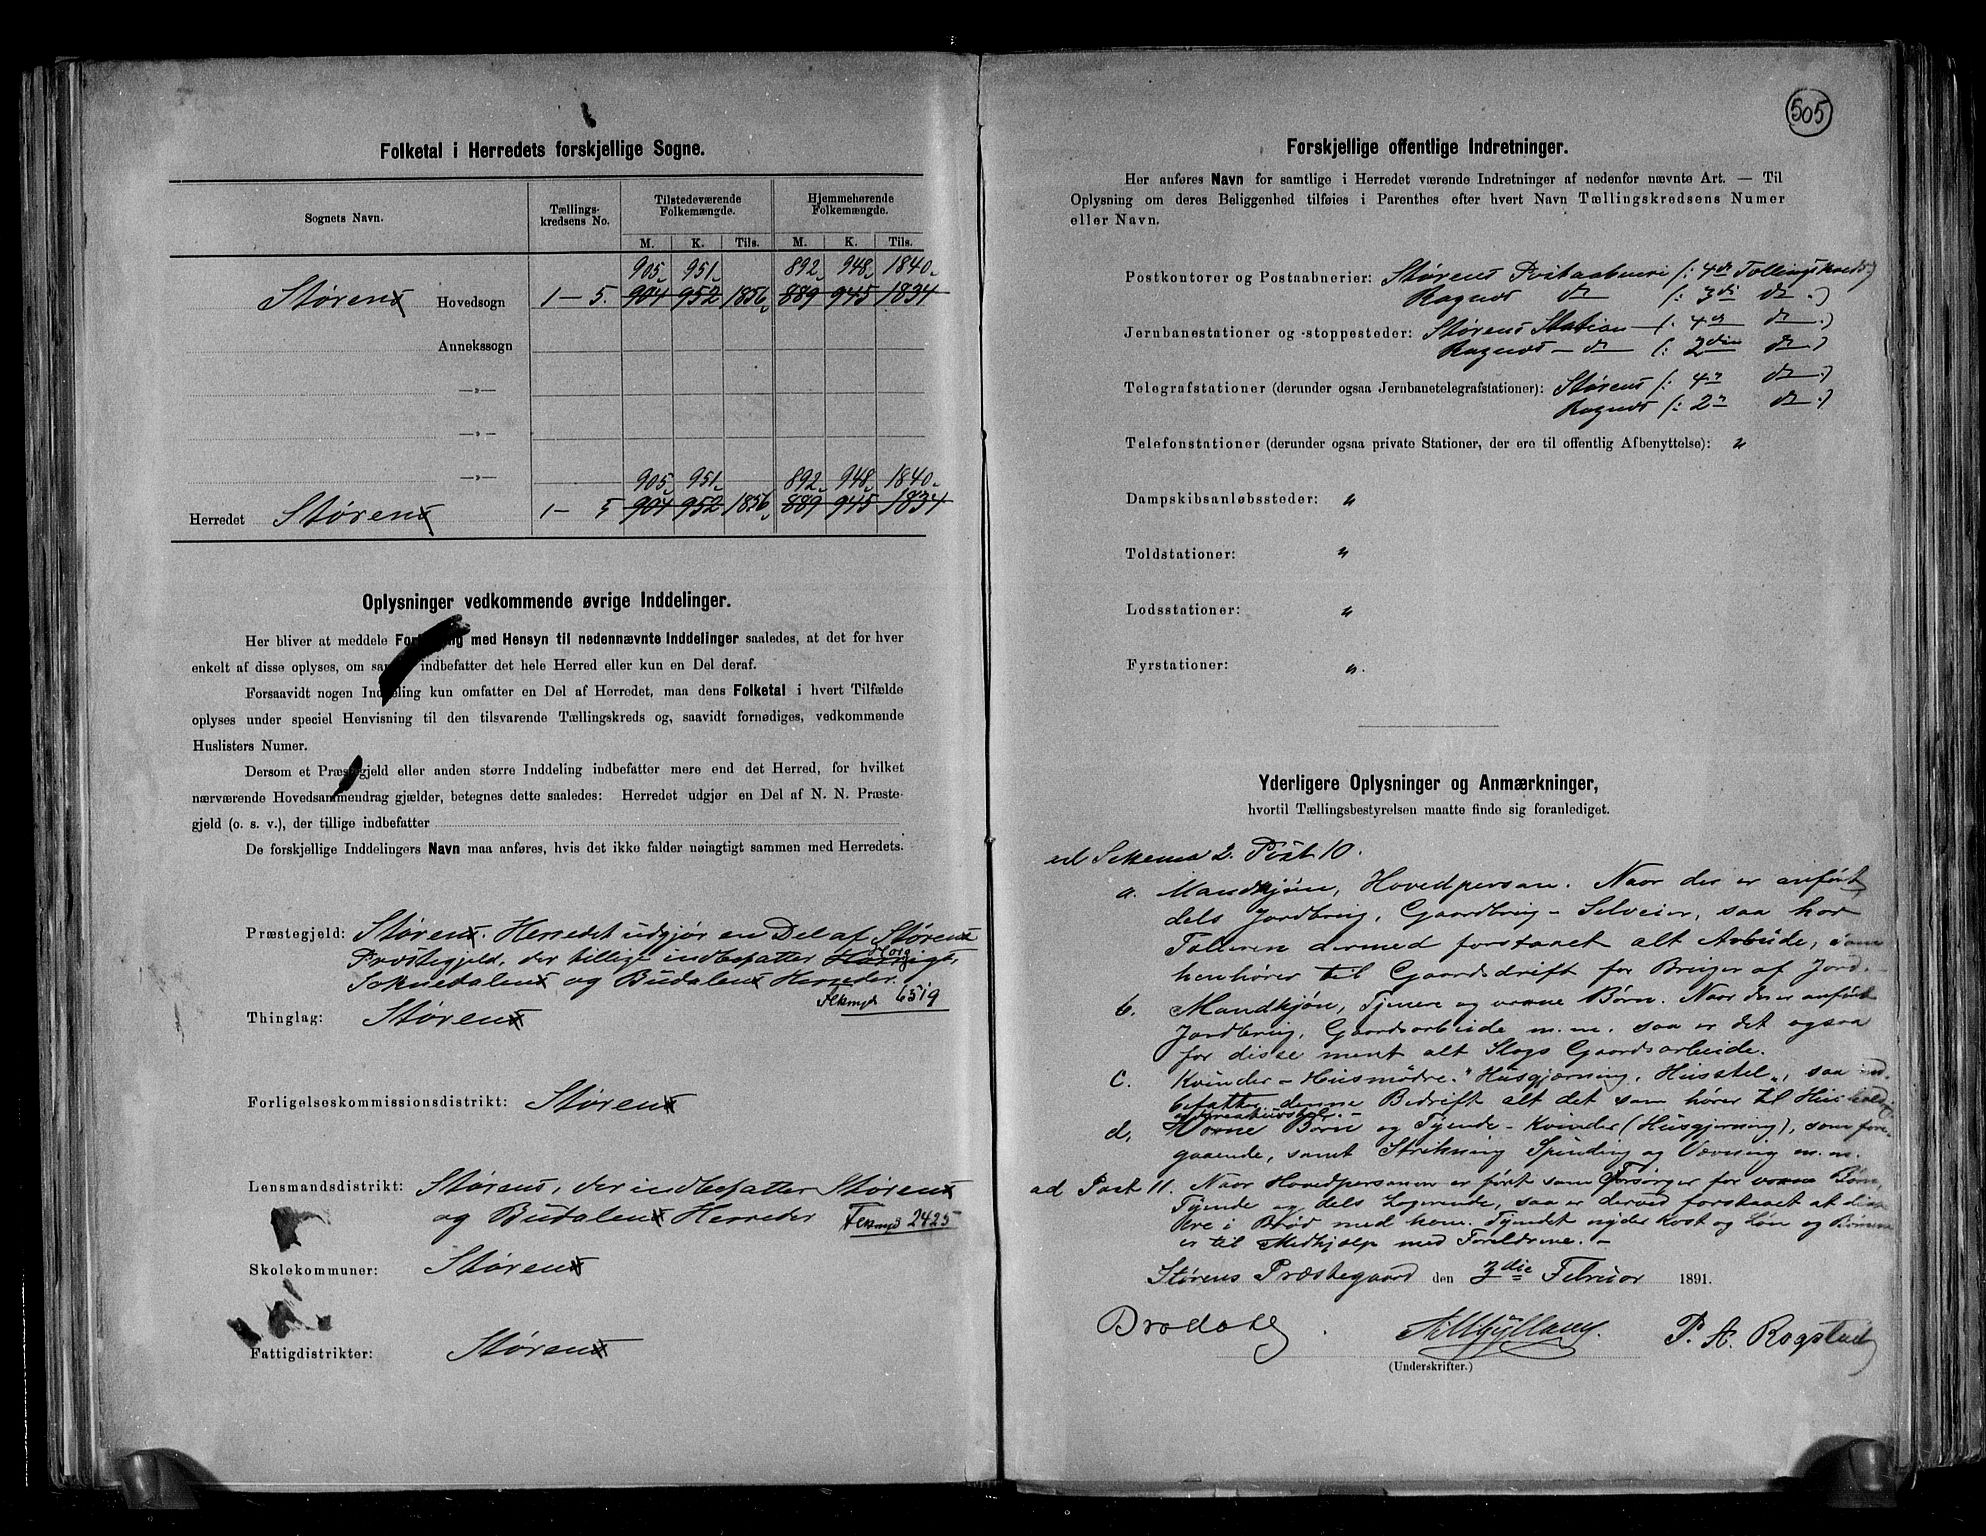 Folketal i Herredets forskjellige Sogne.
Sognets Navn. Tællings-kredsens No. Tilstedeværende Folkemængde. Hjemmehørende Folkemængde.
M. K. Tils. M. K. Tils.
905 951 892 948 1840
Støren Hovedsogn 1-5. 904 952 1856 889 945 1834
Annekssogn
—»—
—»—
—»—
905 951 892 948 1840
Herredet Støren 1-5 904 952 1856 889 945 1834
Oplysninger vedkommende øvrige Inddelinger.
Her bliver at meddele med Hensyn til nedennævnte Inddelinger saaledes, at det for hver
enkelt af disse oplyses, om indbefatter det hele Herred eller kun en Del deraf.
Forsaavidt nogen Inddeling kun omfatter en Del af Herredet, maa dens Folketal i hvert Tilfælde
oplyses under speciel Henvisning til den tilsvarende Tællingskreds og, saavidt fornødiges, vedkommende
Huslisters Numer.
Dersom et Præstegjeld eller anden større Inddeling indbefatter mere end det Herred, for hvilket
nærværende Hovedsammendrag gjælder, betegnes dette saaledes: Herredet udgjør en Del af N. N. Præste-
gjeld (o. s. v.), der tillige indbefatter
De forskjellige Inddelingers Navn maa anføres, hvis det ikke falder nøiagtigt sammen med Herredets.
Præstegjeld: Støren. Herredet udgjør en Del af Støren
Præstegjeld, der tillige indbefatter Horg
Soknedalen og Budalen Herreder.
Flkmgd 6519
Thinglag: Støren
Forligelseskommissionsdistrikt: Støren
Lensmandsdistrikt: Størens, der indbefatter Støren
og Budalen Herreder Flkmgd 2425
Skolekommuner: Støren
Fattigdistrikter: Støren
505
Forskjellige offentlige Indretninger.
Her anføres Navn for samtlige i Herredet værende Indretninger af nedenfor nævnte Art. — Til
Oplysning om deres Beliggenhed tilføies i Parenthes efter hvert Navn Tællingskredsens Numer
eller Navn.
Postkontorer og Postaabnerier: Størens Postaabneri /: 4de Tællingskreds :/
Rognes do /: 3die do :/
Jernbanestationer og -stoppesteder: Størens Station — /: 4de do :/
Rognes — do /: 2den do :/
Telegrafstationer (derunder ogsaa Jernbanetelegrafstationer): Størens /: 4 do :/
Rognes /: 2 do :/
Telefonstationer (derunder ogsaa private Stationer, der ere til offentlig Afbenyttelse): "
Dampskibsanløbssteder: "
Toldstationer: "
Lodsstationer: "
Fyrstationer: "
Yderligere Oplysninger og Anmærkninger,
hvortil Tællingsbestyrelsen maatte finde sig foranlediget.
ad Schema 2. Post 10.
a. Mandkjøn, Hovedperson. Naar der er anført
dels Jordbrug, Gaardbrug - Selveier, saa har
Tælleren dermed forstaaet alt Arbeide, som
henhører til Gaardsdrift for Bruger af Jord.
b. Mandkjøn, Tjenere og voxne Børn. Naar der er anført
Jordbrug, Gaardsarbeide m. m. saa er det ogsaa
for disse ment alt Slags Gaardsarbeide.
c. Kvinder - Husmødre. "Husgjerning, Husstel", saa ind-
befatter denne Bedrift alt det som hører til Husholdng
d. Voxne Børn og Tjende - Kvinder (Husgjerning), som fore-
gaaende, samt Strikning Spinding og Vævning m. m.
ad Post 11. Naar Hovedpersoner er ført som Forsørger for voxne Børn,
Tjende og dels Logerende, saa er derved forstaaet at disse
ere i Brød med ham. Tjendet nyder Kost og Løn og Børnene
er til Medhjælp med Forældrene. -
Størens Præstegaard den 3die Februar 1891.
A. Gylland. P. A. Rogstad
(Underskrifter.)